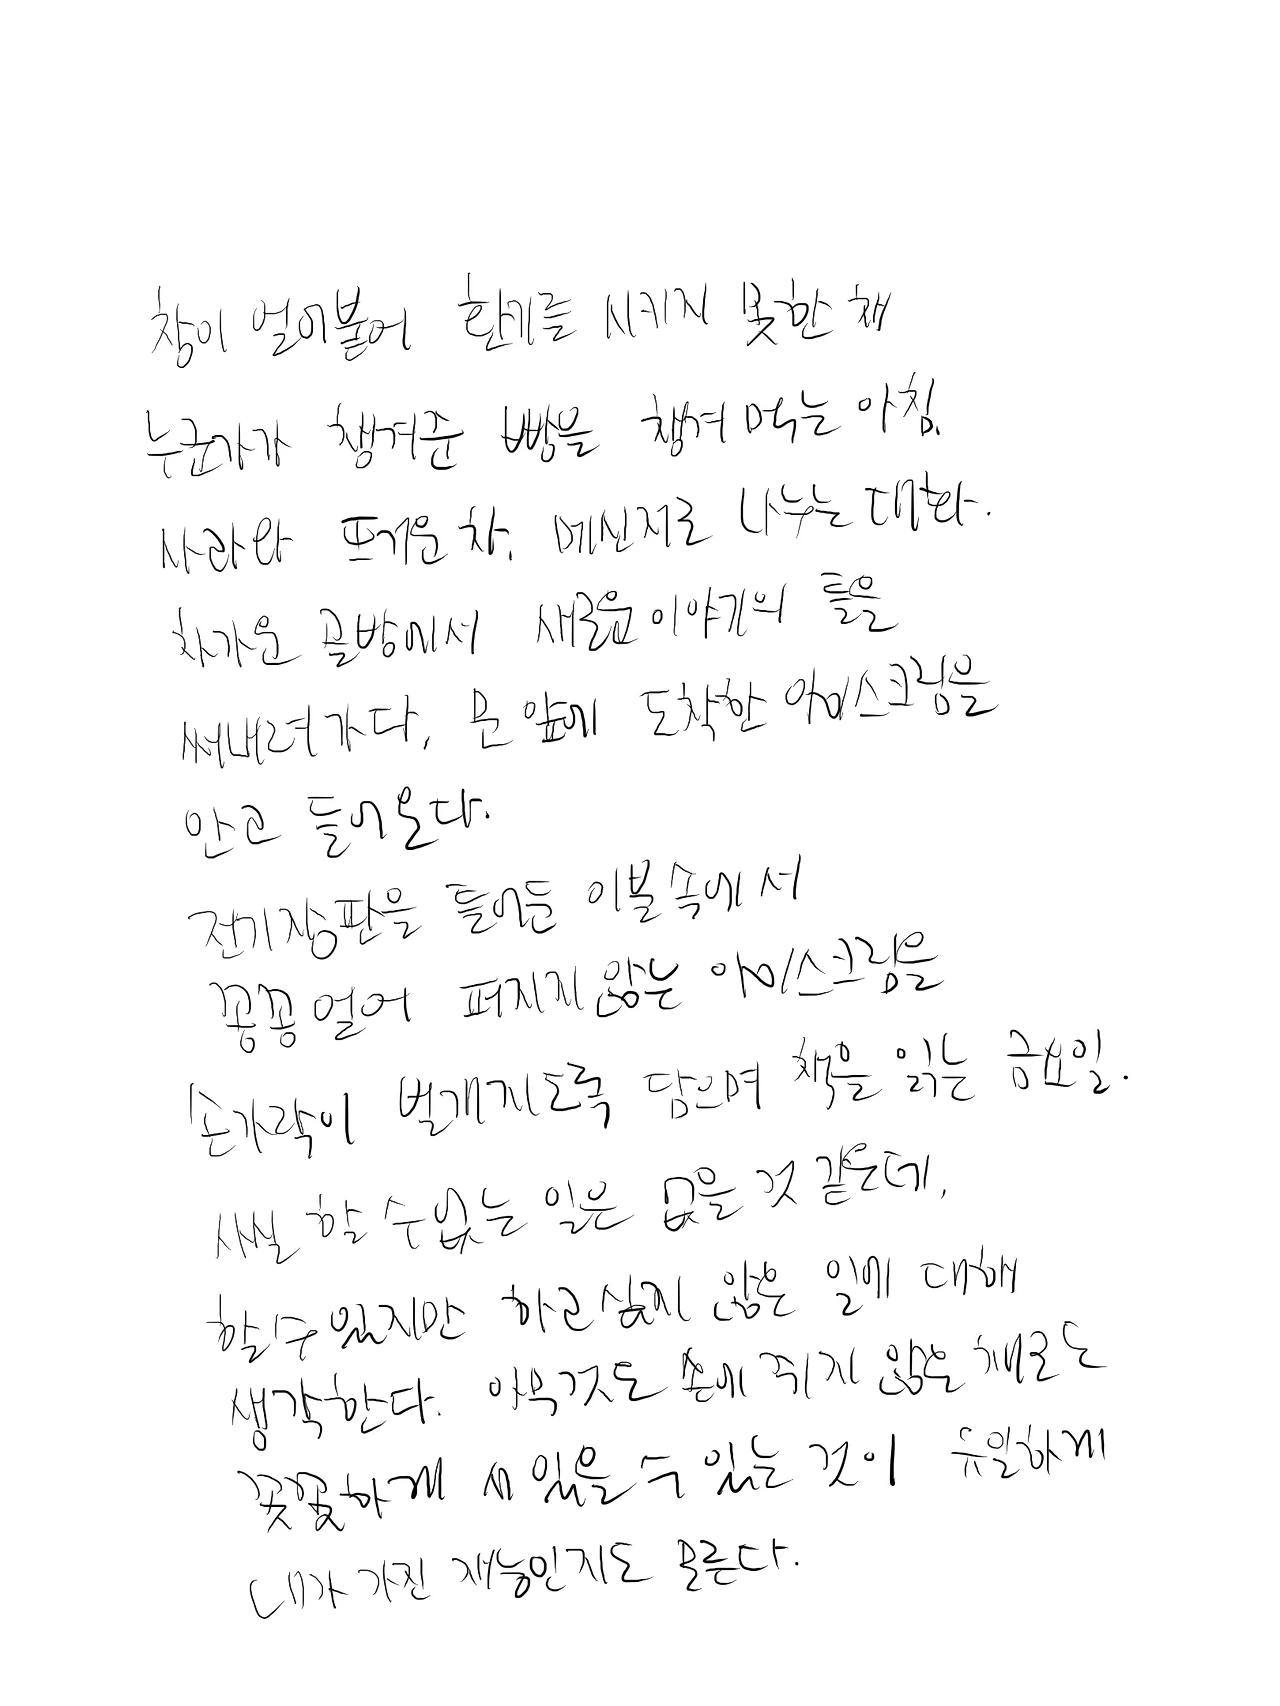 창이 얼어붙어 환기를 시키지 못한 채
누군가가 챙겨준 빵을 챙겨 먹는 아침.
사라와 뜨거운 차. 메신저로 나누는 대화.
차가운 골방에서 새로운 이야기의 틀을
써내려가다, 문 앞에 도착한 아이스크림을
안고 들어온다.
전기장판을 틀어둔 이불 속에서
꽁꽁 얼어 퍼지지 않는 아이스크림을
손가락이 벌개지도록 담으며 책을 읽는 금요일.
사실 할 수 없는 일은 없을 것 같은데,
할 수 있지만 하고 싶지 않은 일에 대해
생각한다. 아무것도 손에 쥐지 않은 채로도
꼿꼿하게 서 있을 수 있는 것이 유일하게
내가 가진 재능인지도 모른다.